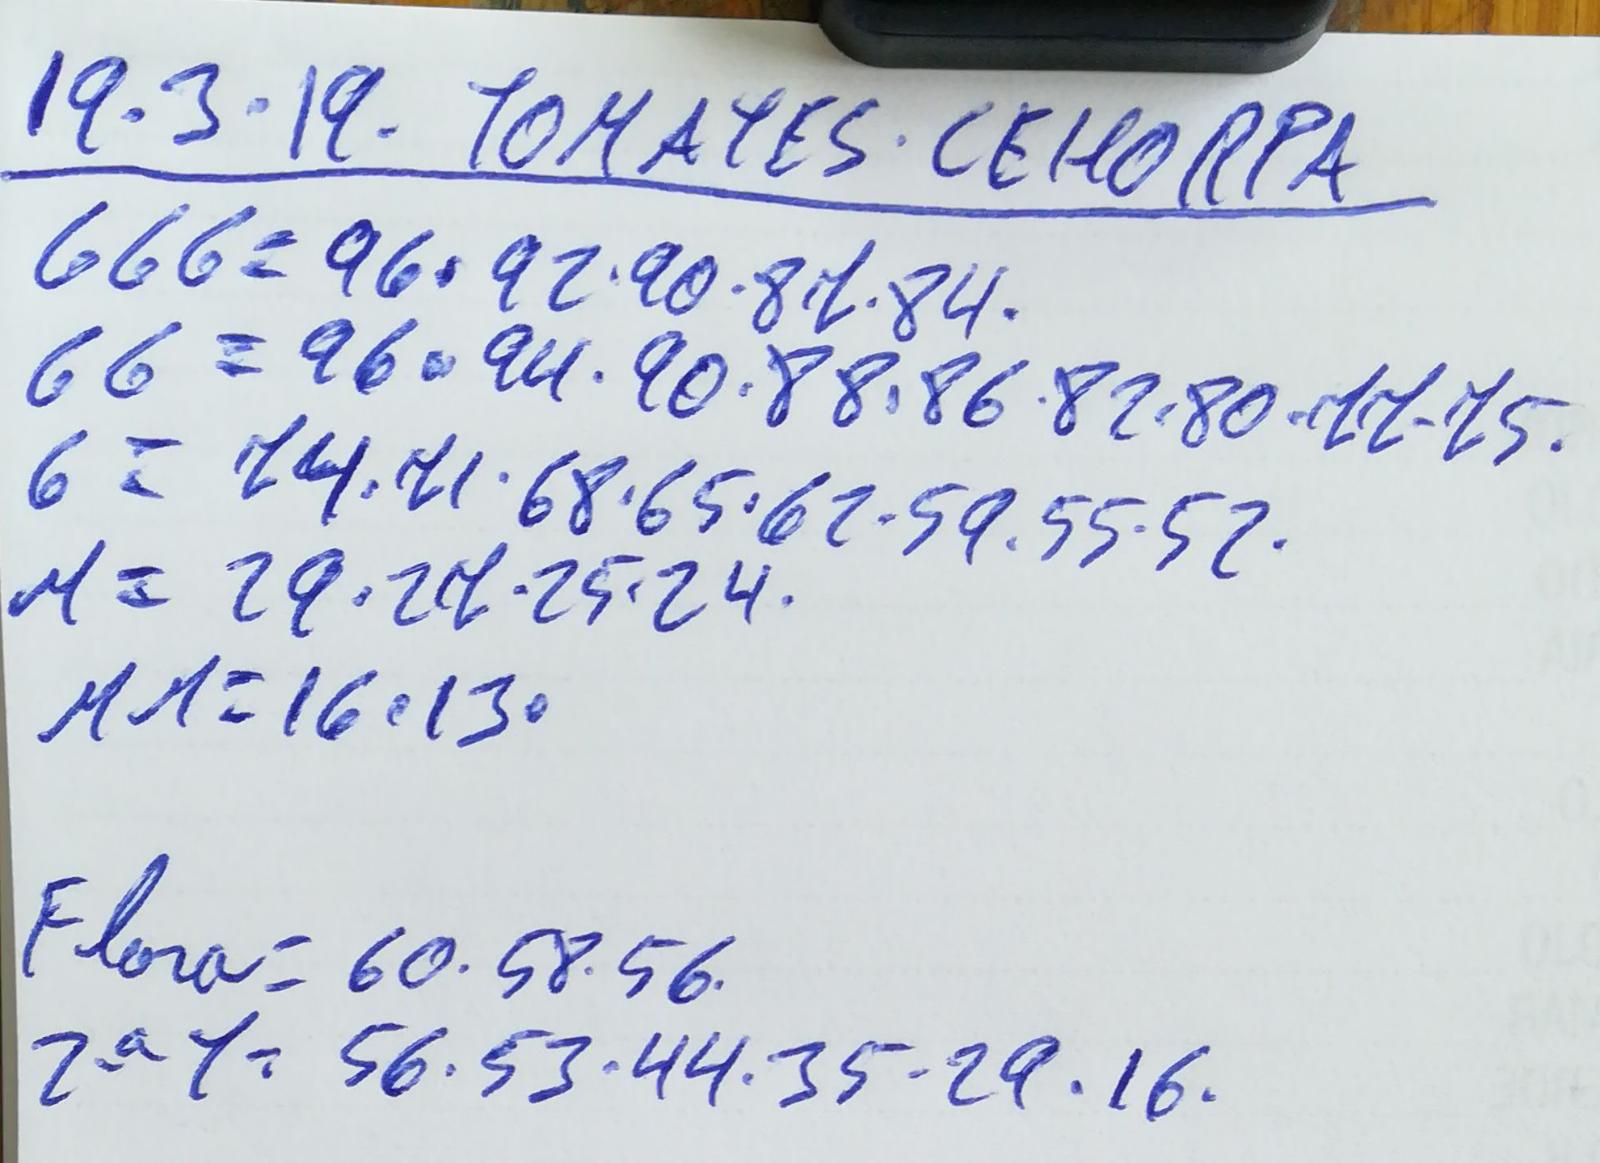 19.3.19. TOMATES. CEHORPA
GGG = 96. 92. 90. 87. 84.
GG = 96. 94. 90. 88. 86. 82. 80. 77. 75.
G = 74. 71. 68. 65. 62. 59. 55. 52.
M = 29. 27. 25. 24.
MM = 16. 13.
Flora = 60. 58. 56.
2.ª T = 56. 53. 44. 35. 29. 16.